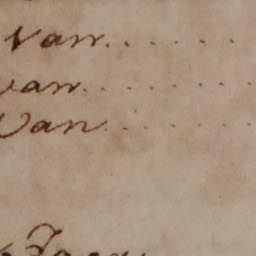 Van . . . . . .
van . . . . . .
Van . . . . . .